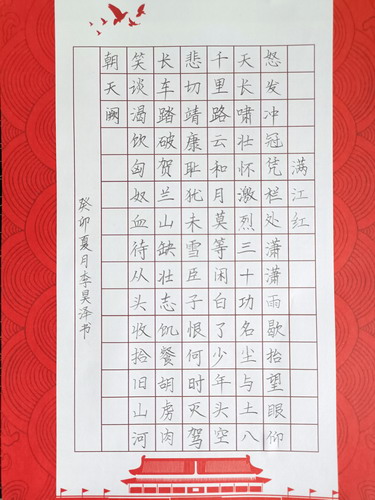 满江红
怒发冲冠凭栏处潇潇雨歇抬望眼仰
天长啸壮怀激烈三十功名尘与土八
千里路云和月莫等闲白了少年头空
悲切靖康耻犹未雪臣子恨何时灭驾
长车踏破贺兰山缺壮志饥餐胡虏肉
笑谈渴饮匈奴血待从头收拾旧山河
朝天阙
癸卯夏月李昊泽书